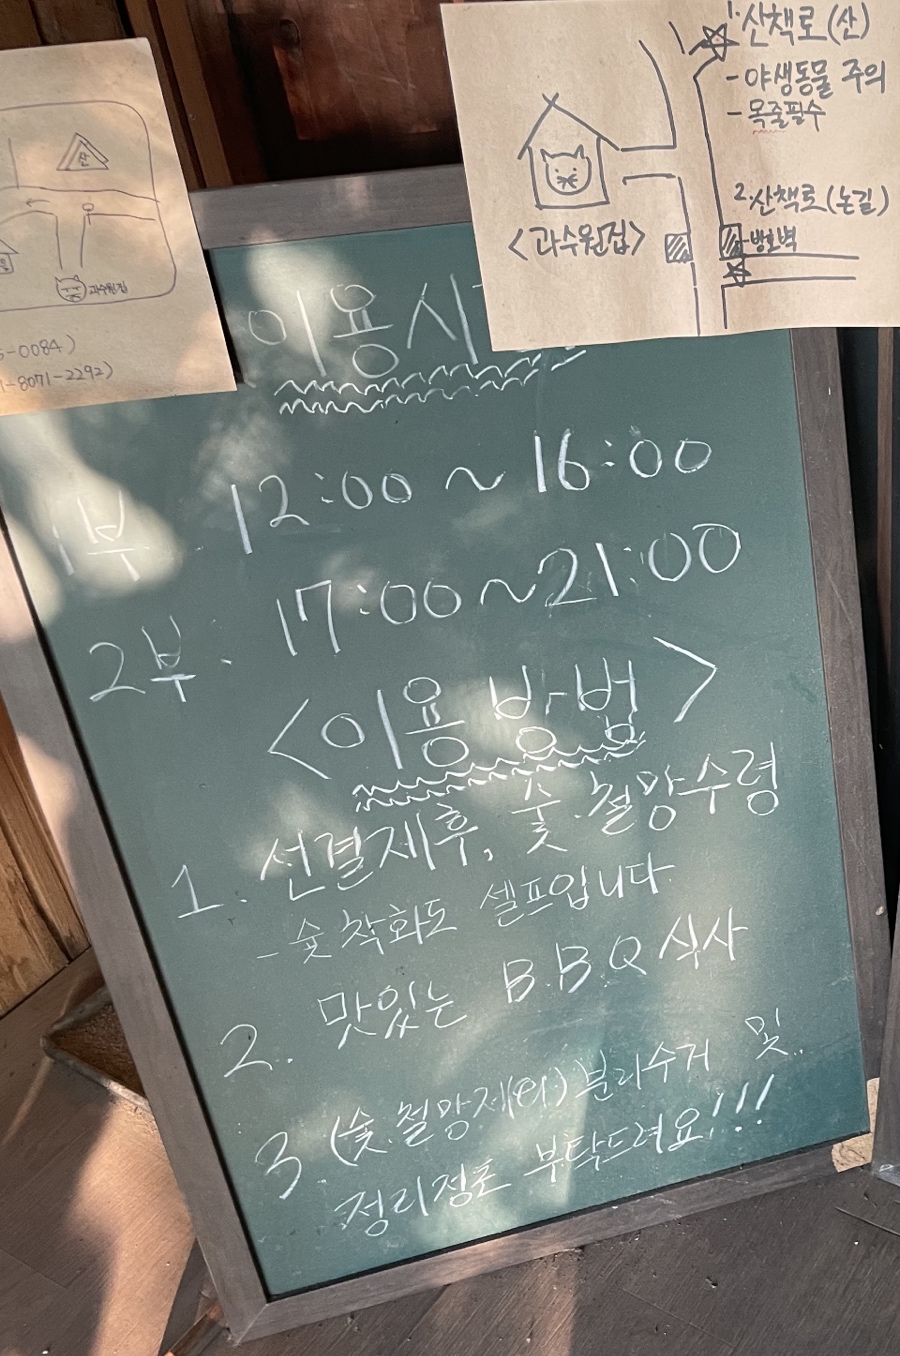 산
과수원집
-0084)
-8071-2292)
1. 산책로(산)
- 야생동물 주의
- 목줄필수
2. 산책로(논길)
방호벽
<과수원집>
이용시
1부. 12:00 ~ 16:00
2부. 17:00 ~ 21:00
<이용 방법>
1. 선결제후, 숯.철망수령
- 숯 착화도 셀프입니다
2. 맛있는 B.B.Q 식사
3 (숯.철망제외) 분리수거 및
정리정돈 부탁드려요!!!